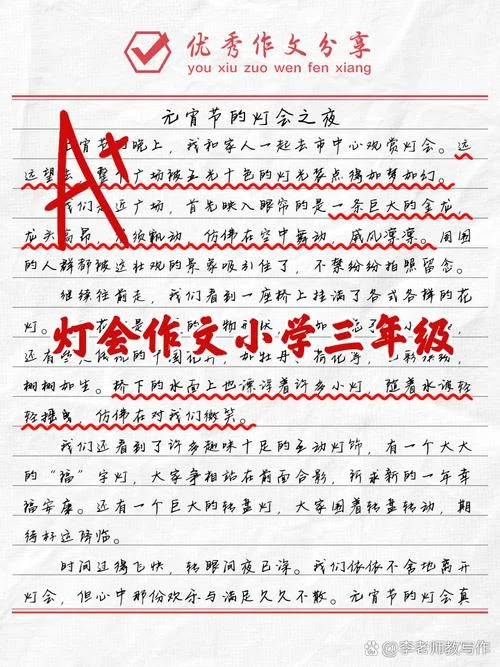 优秀作文分享
you xiu zuo wen fen xiang
元宵节的灯会之夜
A+
宵节的晚上，我和家人一起去市中心观赏灯会。远
远望去，整个广场被五光十色的灯光装点得如梦如幻。
我们走近广场，首先映入眼帘的是一条巨大的金龙，
龙头高昂，龙须飘动，仿佛在空中舞动，威风凛凛。周围
的人群都被这壮观的景象吸引住了，不禁纷纷拍照留念。
继续往前走，我们看到一座桥上挂满了各式各样的花
灯。
灯会作文小学三年级
还有
栩栩如生。桥下的水面上也漂浮着许多小灯，随着水波轻
轻摇曳，仿佛在对我们微笑。
我们还看到了许多趣味十足的互动灯饰，有一个大大
的“福”字灯，大家争相站在前面合影，祈求新的一年幸
福安康。还有一个巨大的转盘灯，大家围着转盘转动，期
待好运降临。
时间过得飞快，转眼间夜已深。我们依依不舍地离开
灯会，但心中那份欢乐与满足久久不散。元宵节的灯会真
李老师教写作